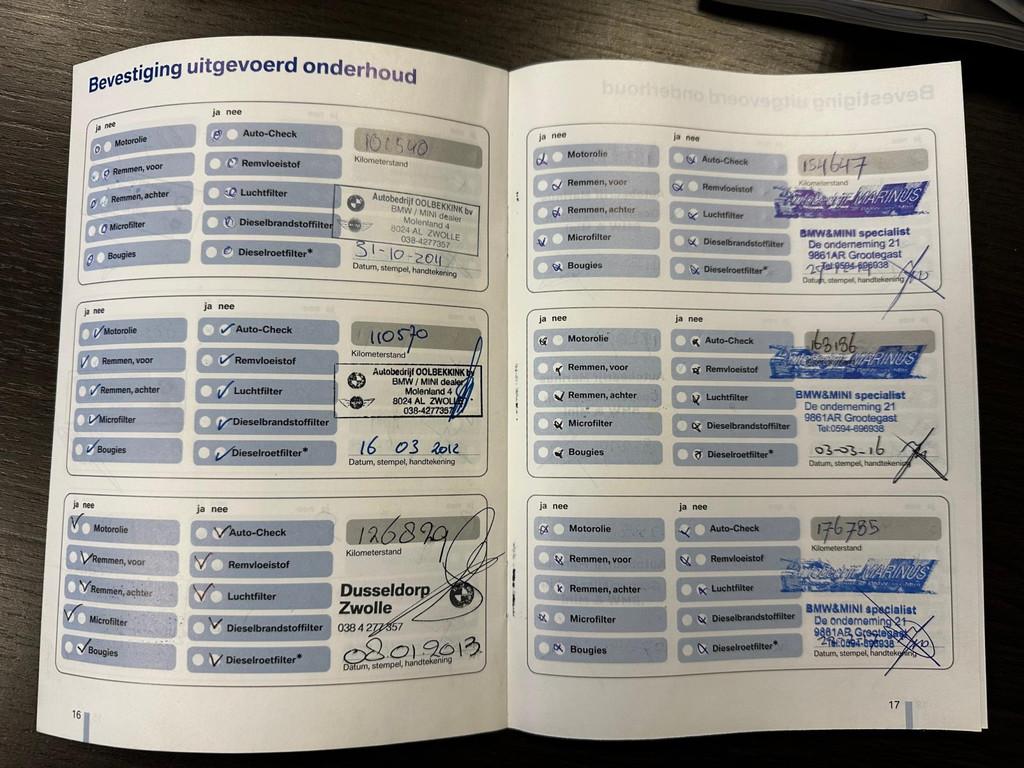 Bevestiging uitgevoerd onderhoud
ja nee
ja nee
Motorolie
Remmen, voor
Remmen, achter
Microfilter
Bougies
Auto-Check
Remvloeistof
Luchtfilter
Dieselbrandstoffilter
Dieselroetfilter*
101540
Kilometerstand
Autobedrijf OOLBEKKINK bv
BMW / MINI dealer
Molenland 4
8024 AL ZWOLLE
038-4277357
31-10-2011
Datum, stempel, handtekening
ja nee
ja nee
Motorolie
Remmen, voor
Remmen, achter
Microfilter
Bougies
Auto-Check
Remvloeistof
Luchtfilter
Dieselbrandstoffilter
Dieselroetfilter*
110570
Kilometerstand
Autobedrijf OOLBEKKINK bv
BMW / MINI dealer
Molenland 4
8024 AL ZWOLLE
038-4277357
16 03 2012
Datum, stempel, handtekening
ja nee
ja nee
Motorolie
Remmen, voor
Remmen, achter
Microfilter
Bougies
Auto-Check
Remvloeistof
Luchtfilter
Dieselbrandstoffilter
Dieselroetfilter*
126829
Kilometerstand
Dusseldorp
Zwolle
038 4 277 357
08.01.2013
Datum, stempel, handtekening
16
ja nee
ja nee
Motorolie
Remmen, voor
Remmen, achter
Microfilter
Bougies
Auto-Check
Remvloeistof
Luchtfilter
Dieselbrandstoffilter
Dieselroetfilter*
154647
Kilometerstand
MARINUS
BMW&MINI specialist
De onderneming 21
9861AR Grootegast
Tel:0594-696938
Datum, stempel, handtekening
ja nee
ja nee
Motorolie
Remmen, voor
Remmen, achter
Microfilter
Bougies
Auto-Check
Remvloeistof
Luchtfilter
Dieselbrandstoffilter
Dieselroetfilter*
168186
MARINUS
BMW&MINI specialist
De onderneming 21
9861AR Grootegast
Tel:0594-696938
03-03-16
Datum, stempel, handtekening
ja nee
ja nee
Motorolie
Remmen, voor
Remmen, achter
Microfilter
Bougies
Auto-Check
Remvloeistof
Luchtfilter
Dieselbrandstoffilter
Dieselroetfilter*
176785
Kilometerstand
MARINUS
BMW&MINI specialist
De onderneming 21
9861AR Grootegast
Tel:0594-696938
Datum, stempel, handtekening
17